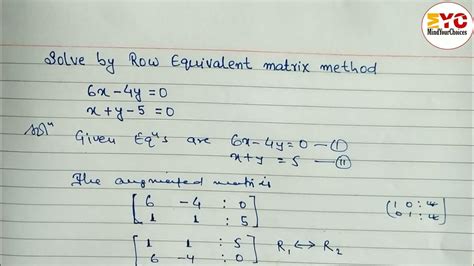 MYC
MindYourChoices
Solve by Row Equivalent matrix method
6x-4y=0
x+y-5=0
Solⁿ Given Eqⁿs are 6x-4y=0 —Ⓘ
x+y=5 —Ⓘⓘ
The augmented matrix is
[ 6 -4 : 0 ]
[ 1 1 : 5 ]
[ 1 1 : 5 ] R₁↔R₂
[ 6 -4 : 0 ]
( 1 0 :
0 1 :